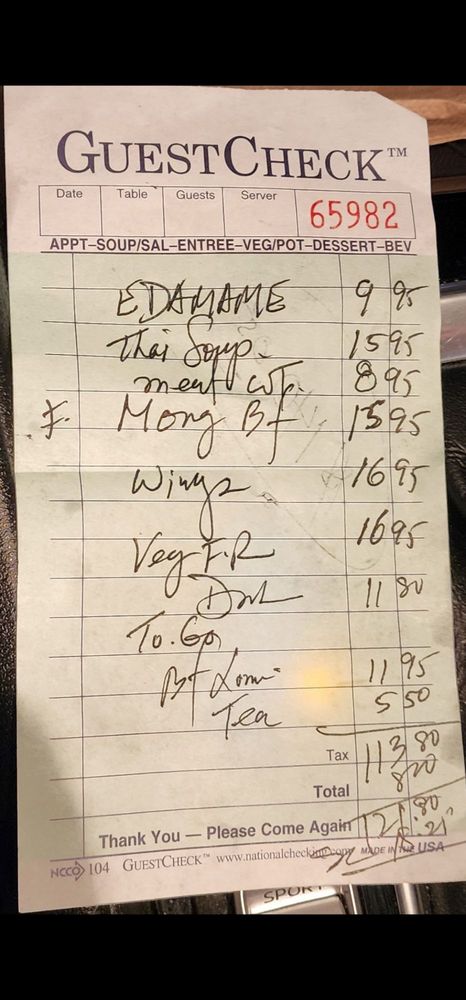 GUESTCHECK™
Date Table Guests Server
65982
APPT–SOUP/SAL–ENTREE–VEG/POT–DESSERT–BEV
EDAMAME 9 95
Thai Soup. 15 95
meat WT. 8 95
Mong Bf 15 95
Wings 16 95
Veg F.R 16 95
11 80
To.Go
Bf Lomi 11 95
Tea 5 50
Tax 113 80
8 20
Total
Thank You — Please Come Again
NCCO 104 GUESTCHECK™ www.nationalchecking.com MADE IN THE USA
SPORT